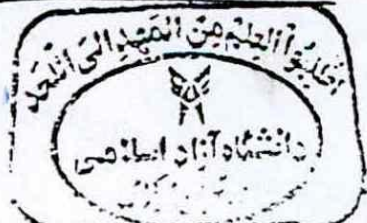 اطلبوا العلم من المهد الی اللحد
دانشگاه آزاد اسلامی